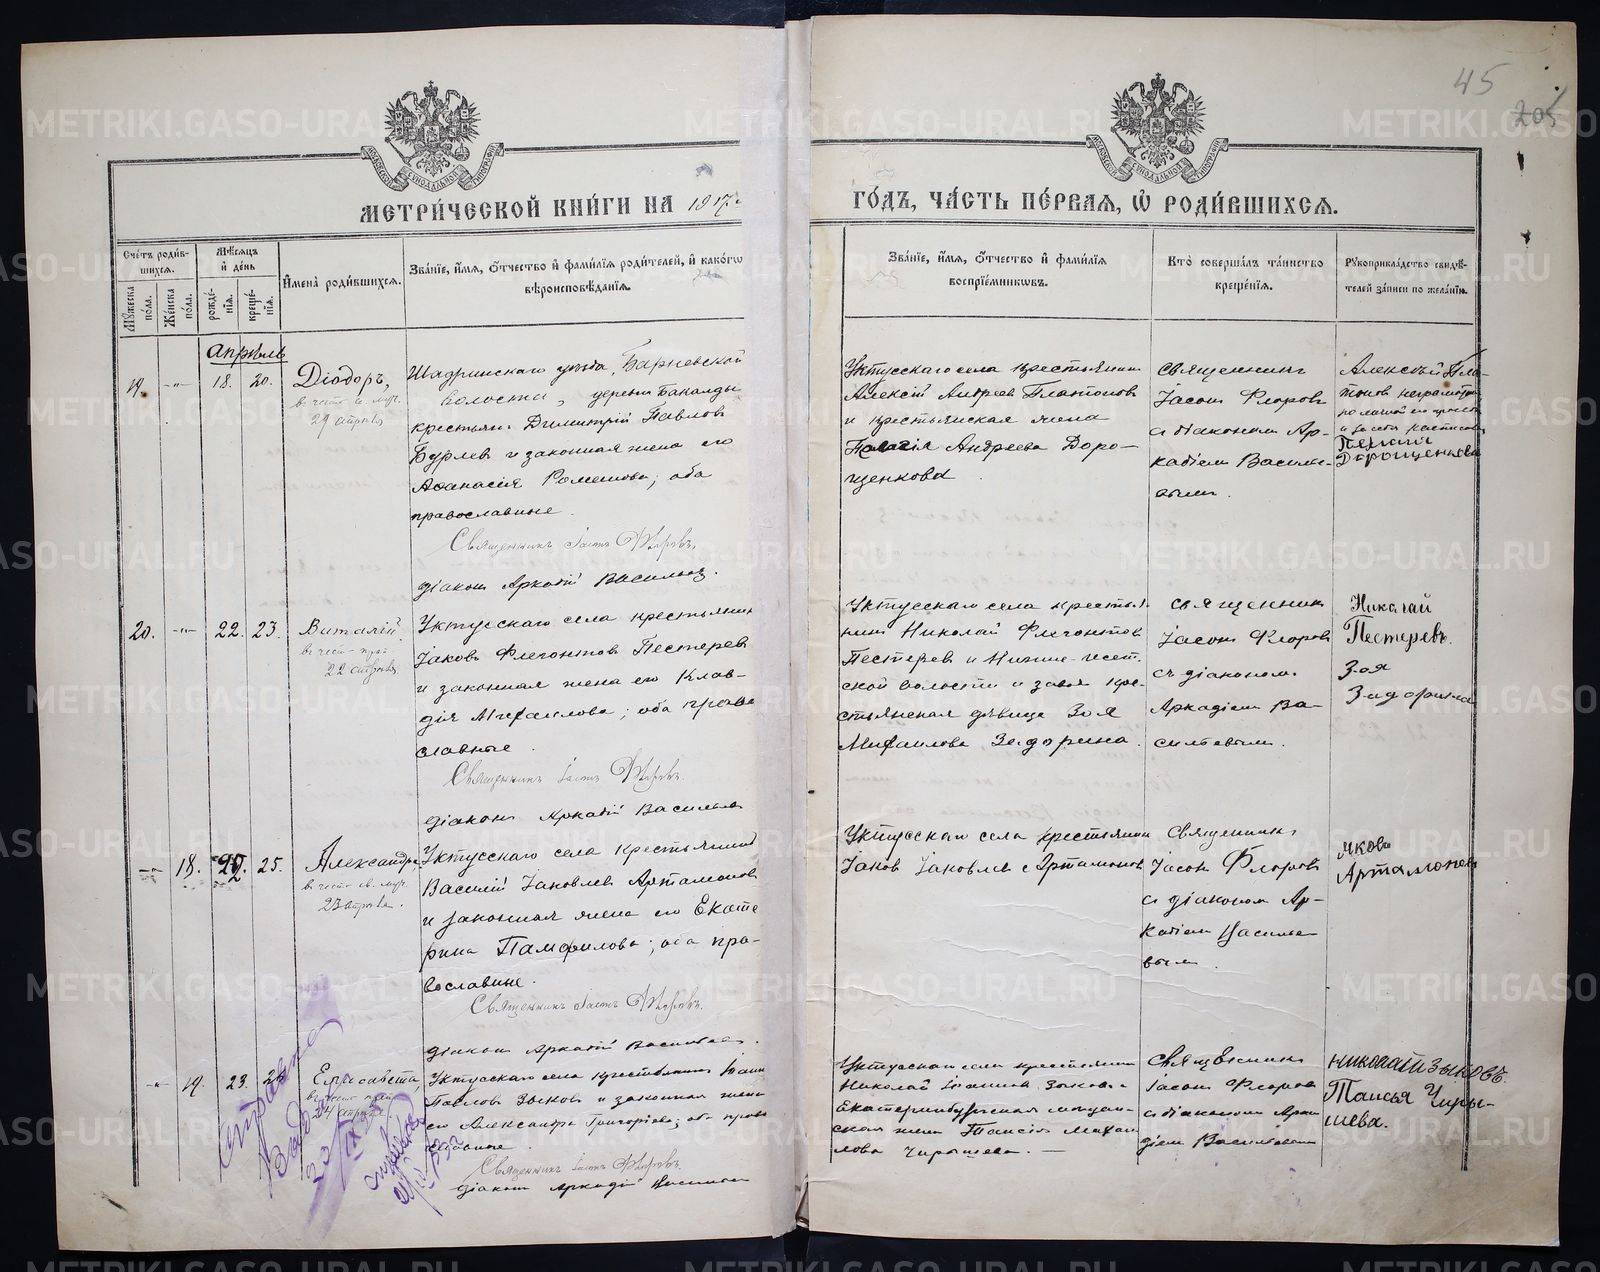 45
205
МЕТРИ́ЧЕСКОЙ КНИ́ГИ НА 1917 г
ГО́ДЪ, ЧА́СТЬ ПЕ́РВАЯ, Ѡ РОДИ́ВШИХСЯ.
Сче́тъ роди́в-
шихся.
Му́жеска по́ла.
Же́нска по́ла.
Мѣ́сяцъ и де́нь
рожде́-
нїя.
креще́-
нїя.
Имена̀ роди́вшихся.
Зва́нїе, и́мя, о́тчество и фами́лїя роди́телей, и како́гѡ
вѣроисповѣ́данїя.
Зва́нїе, и́мя, о́тчество и фами́лїя
воспрїе́мникѡвъ.
Кто̀ соверша́лъ та́инство
креще́нїя.
Рукоприкла́дство свидѣ́-
телей за́писи по жела́нїю.
Апрѣль
19.
18. 20.
Діодоръ,
29 апрѣля
Шадринскаго уѣзда, Барневской
волости, деревни Бакалды
крестьян. Димитрій Павловъ
Бурлев и законная жена его
Аѳанасія Романова; оба
православные.
Священникъ Іасонъ Флоровъ.
діакон Аркадій Васильев.
Уктусскаго села крестьянин
Алексій Андреев Платонов
и крестьянская жена
Пелагія Андреева Доро-
щенкова
Священник
Іасон Флоров
с діаконом Ар-
кадіем Василь-
евым.
Алексей Пла-
тонов неграмотн.
Пелагія
Дорощенкова
20.
22. 23.
Виталій,
22 апрѣля
Уктусскаго села крестьянин
Іаков Флегонтов Пестерев
и законная жена его Клав-
дія Михаилова; оба право
славные.
Священникъ Іасонъ Флоровъ.
діакон Аркадій Васильев
Уктусскаго села крестья-
нин Николай Флегонтов
Пестерев и Нижне-исет-
ской волости и завода кре-
стьянская дѣвица Зоя
Михаилова Задорина.
Священник
Іасон Флоров
съ діаконом
Аркадіем Ва-
сильевым.
Николай
Пестеревъ.
Зоя
Задорина
18.
22. 25.
Александра,
в честь св. муч.
23 апрѣля.
Уктусскаго села крестьянин
Василій Іаковлев Артамонов
и законная жена его Екате
рина Памфилова; оба пра-
вославные.
Священникъ Іасонъ Флоровъ.
діакон Аркадій Васильев.
Уктусскаго села крестьянин
Іаков Іаковлев Артамонов
Священник
Іасон Флоров
с діаконом Ар-
кадіем Василье
вым.
Яков
Артамонов
19.
23. 24.
Елисавета,
Уктусскаго села крестьянин Іоанн
Павлов Зыков и законная жена
его Александра Григоріева; оба право
славные.
Священникъ Іасонъ Флоровъ.
діакон Аркадій Васильев
Уктусскаго села крестьянин
Николай Іоаннов Зыков и
Екатеринбургская мѣщан-
ская жена Таисія Михаи
лова Чирышева.
Священник
Іасон Флоров
с діаконом Арка
діем Васильевым
Николай Зыковъ.
Таисья Чиры-
шева.